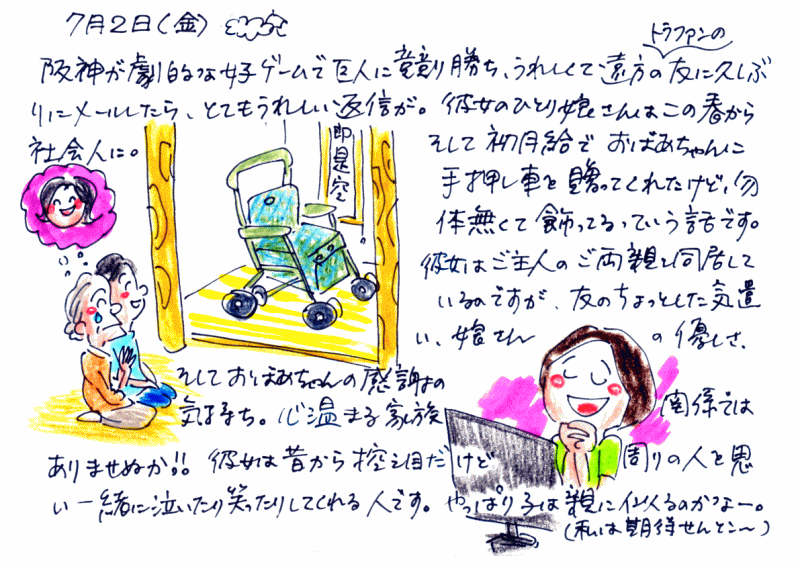 7月2日(金)
トラファンの
阪神が劇的な好ゲームで巨人に競り勝ち、うれしくて遠方の友に久しぶ
りにメールしたら、とてもうれしい返信が。彼女のひとり娘さんはこの春から
社会人に。
即是空
そして初月給でおばあちゃんに
手押し車を贈ってくれたけど、勿
体無くて飾ってるっていう話です。
彼女はご主人のご両親と同居して
いるのですが、友のちょっとした気遣
い、娘さん の優しさ、
そしておばあちゃんの感謝の
気持ち。心温まる家族 関係では
ありませぬか!! 彼女は昔から控え目だけど 周りの人を思
い一緒に泣いたり笑ったりしてくれる人です。やっぱり子は親に似るのかなー。
(私は期待せんとこ〜)